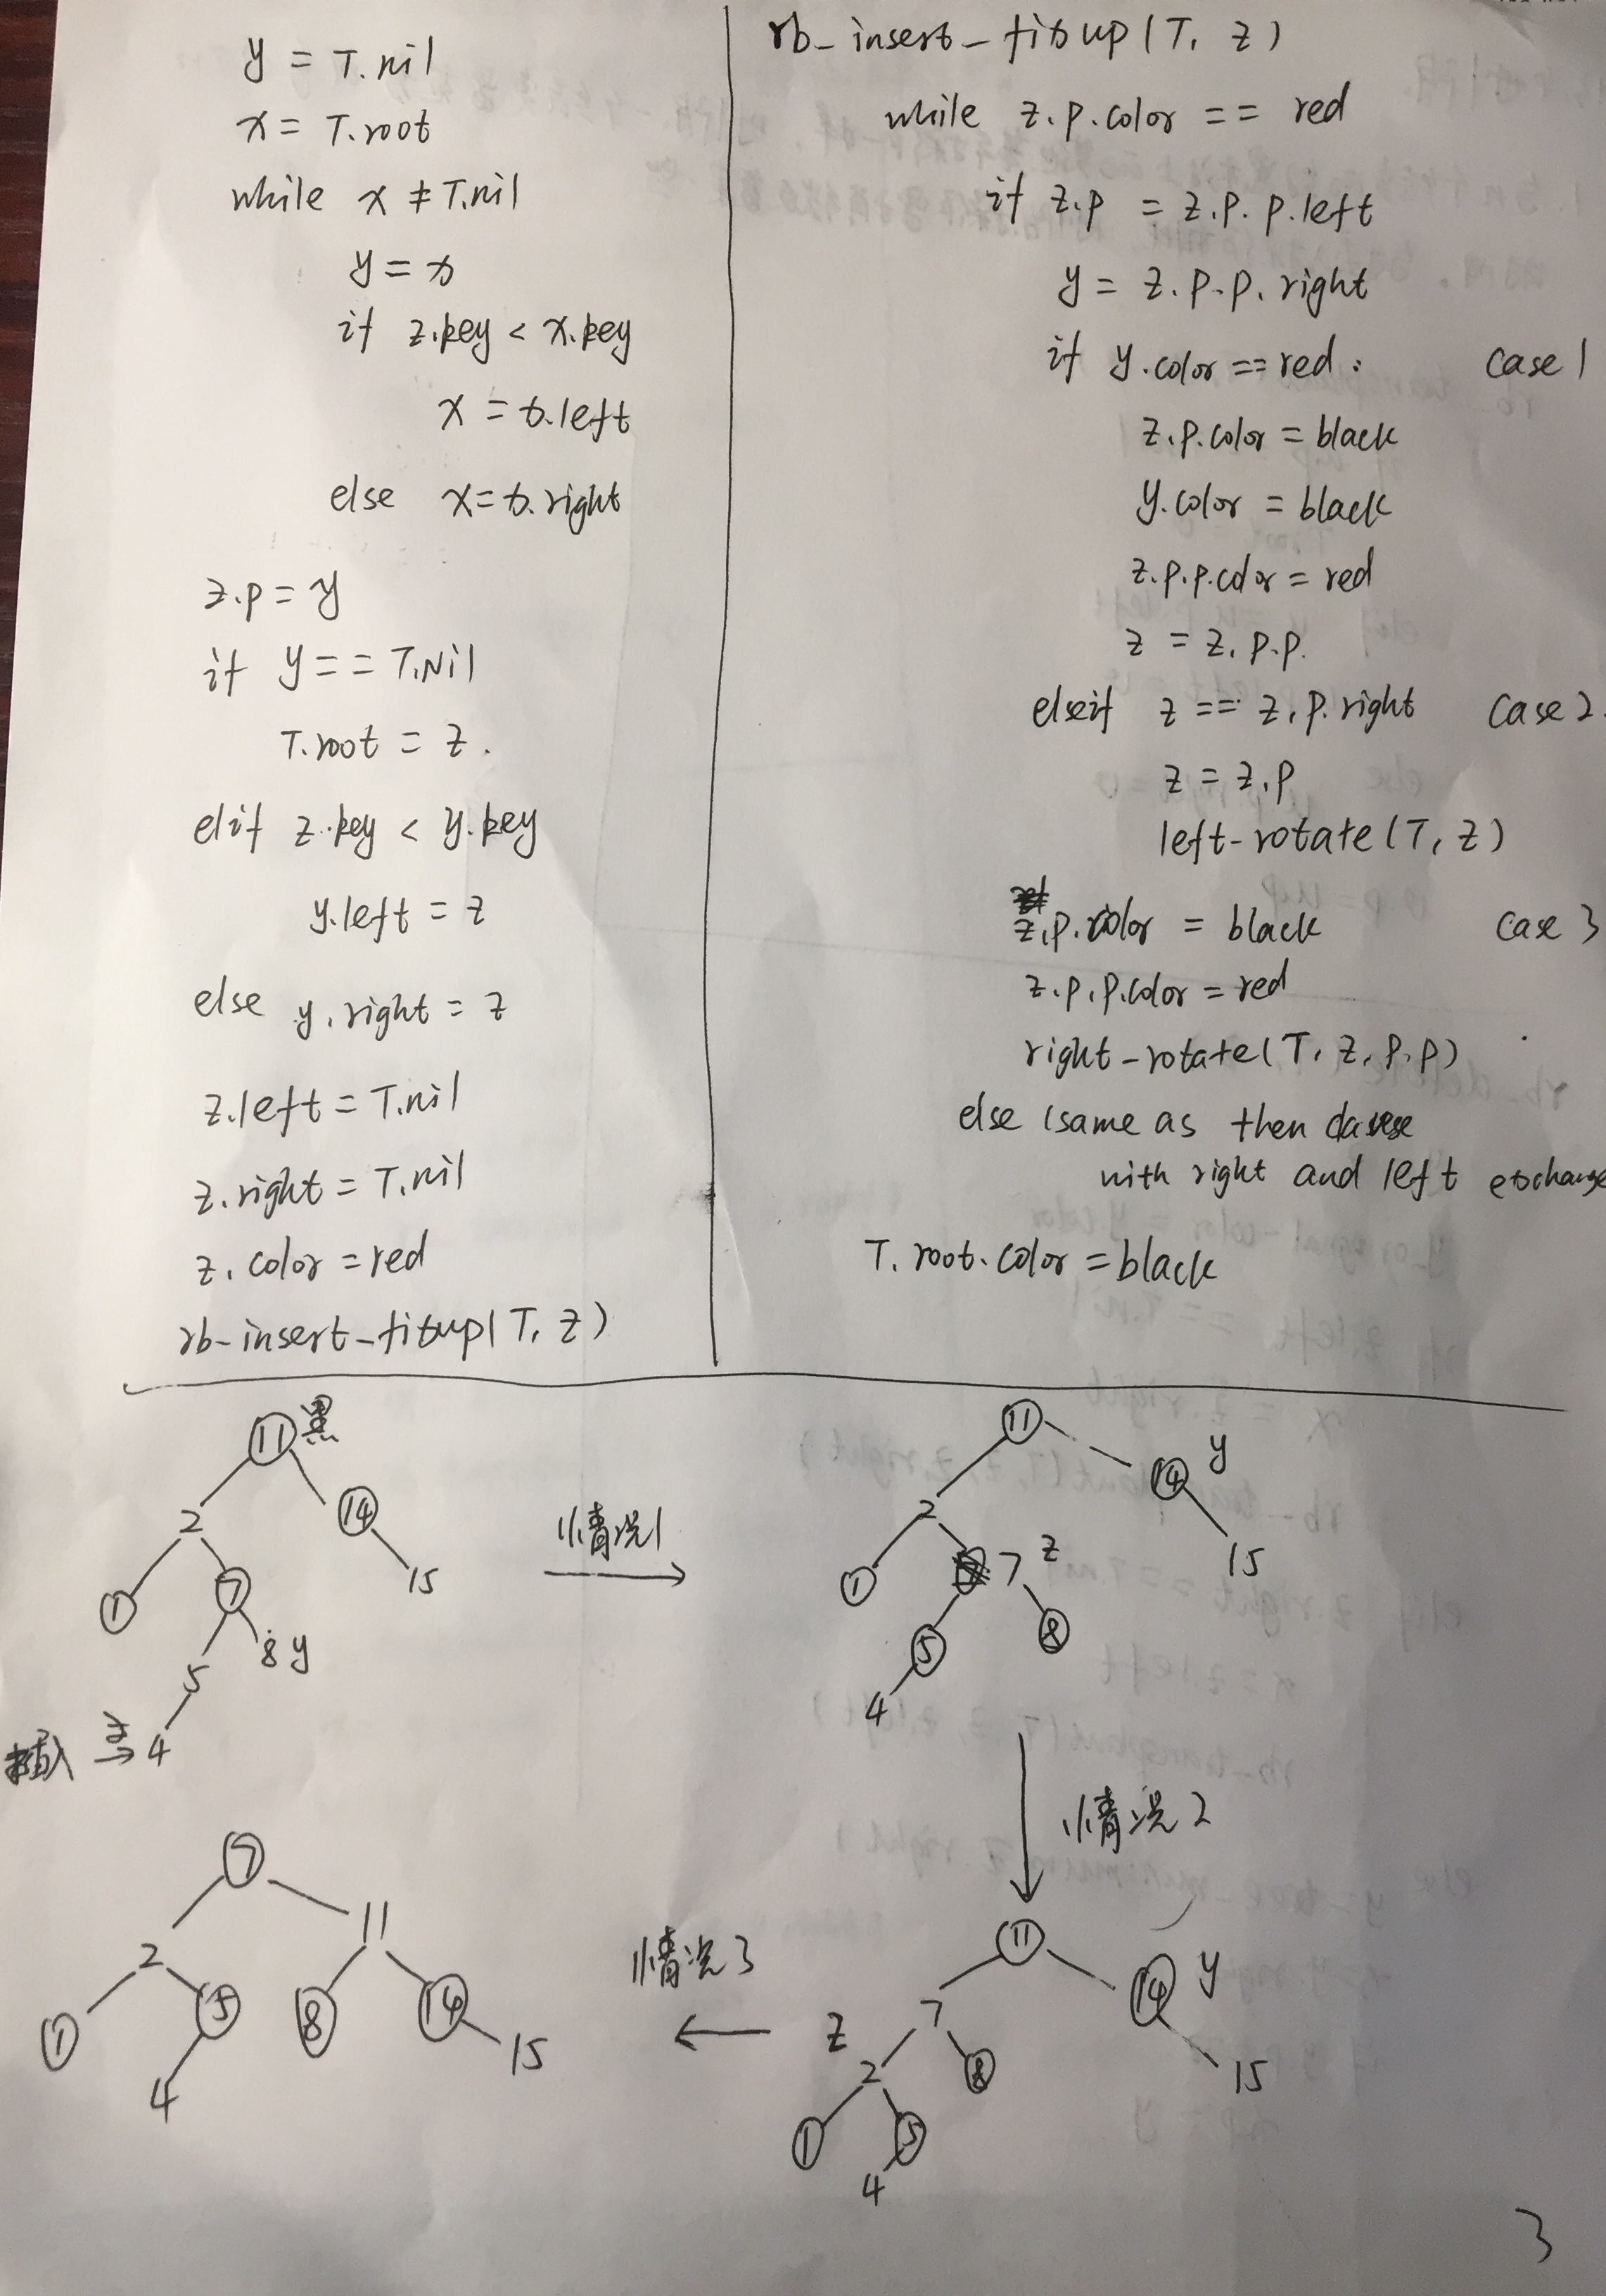 y = T.nil
x = T.root
while x ≠ T.nil
y = x
if z.key < x.key
x = x.left
else x = x.right
z.p = y
if y == T.Nil
T.root = z.
elif z.key < y.key
y.left = z
else y.right = z
z.left = T.nil
z.right = T.nil
z.color = red
rb-insert-fixup(T, z)
rb-insert-fixup(T, z)
while z.p.color == red
if z.p = z.p.p.left
y = z.p.p.right
if y.color == red : case 1
z.p.color = black
y.color = black
z.p.p.color = red
z = z.p.p.
elseif z == z.p.right case 2.
z = z.p
left-rotate(T, z)
z.p.color = black case 3
z.p.p.color = red
right-rotate(T, z.p.p)
else (same as then
with right and left exchange
T.root.color = black
11 黑
2 14
1 7 15
5 8 y
插入 z → 4
情况1
11
2 14 y
1 7 z 15
5 8
4
情况2
11
7 14 y
z 2 8 15
1 5
4
情况3
7
2 11
1 5 8 14
4 15
3